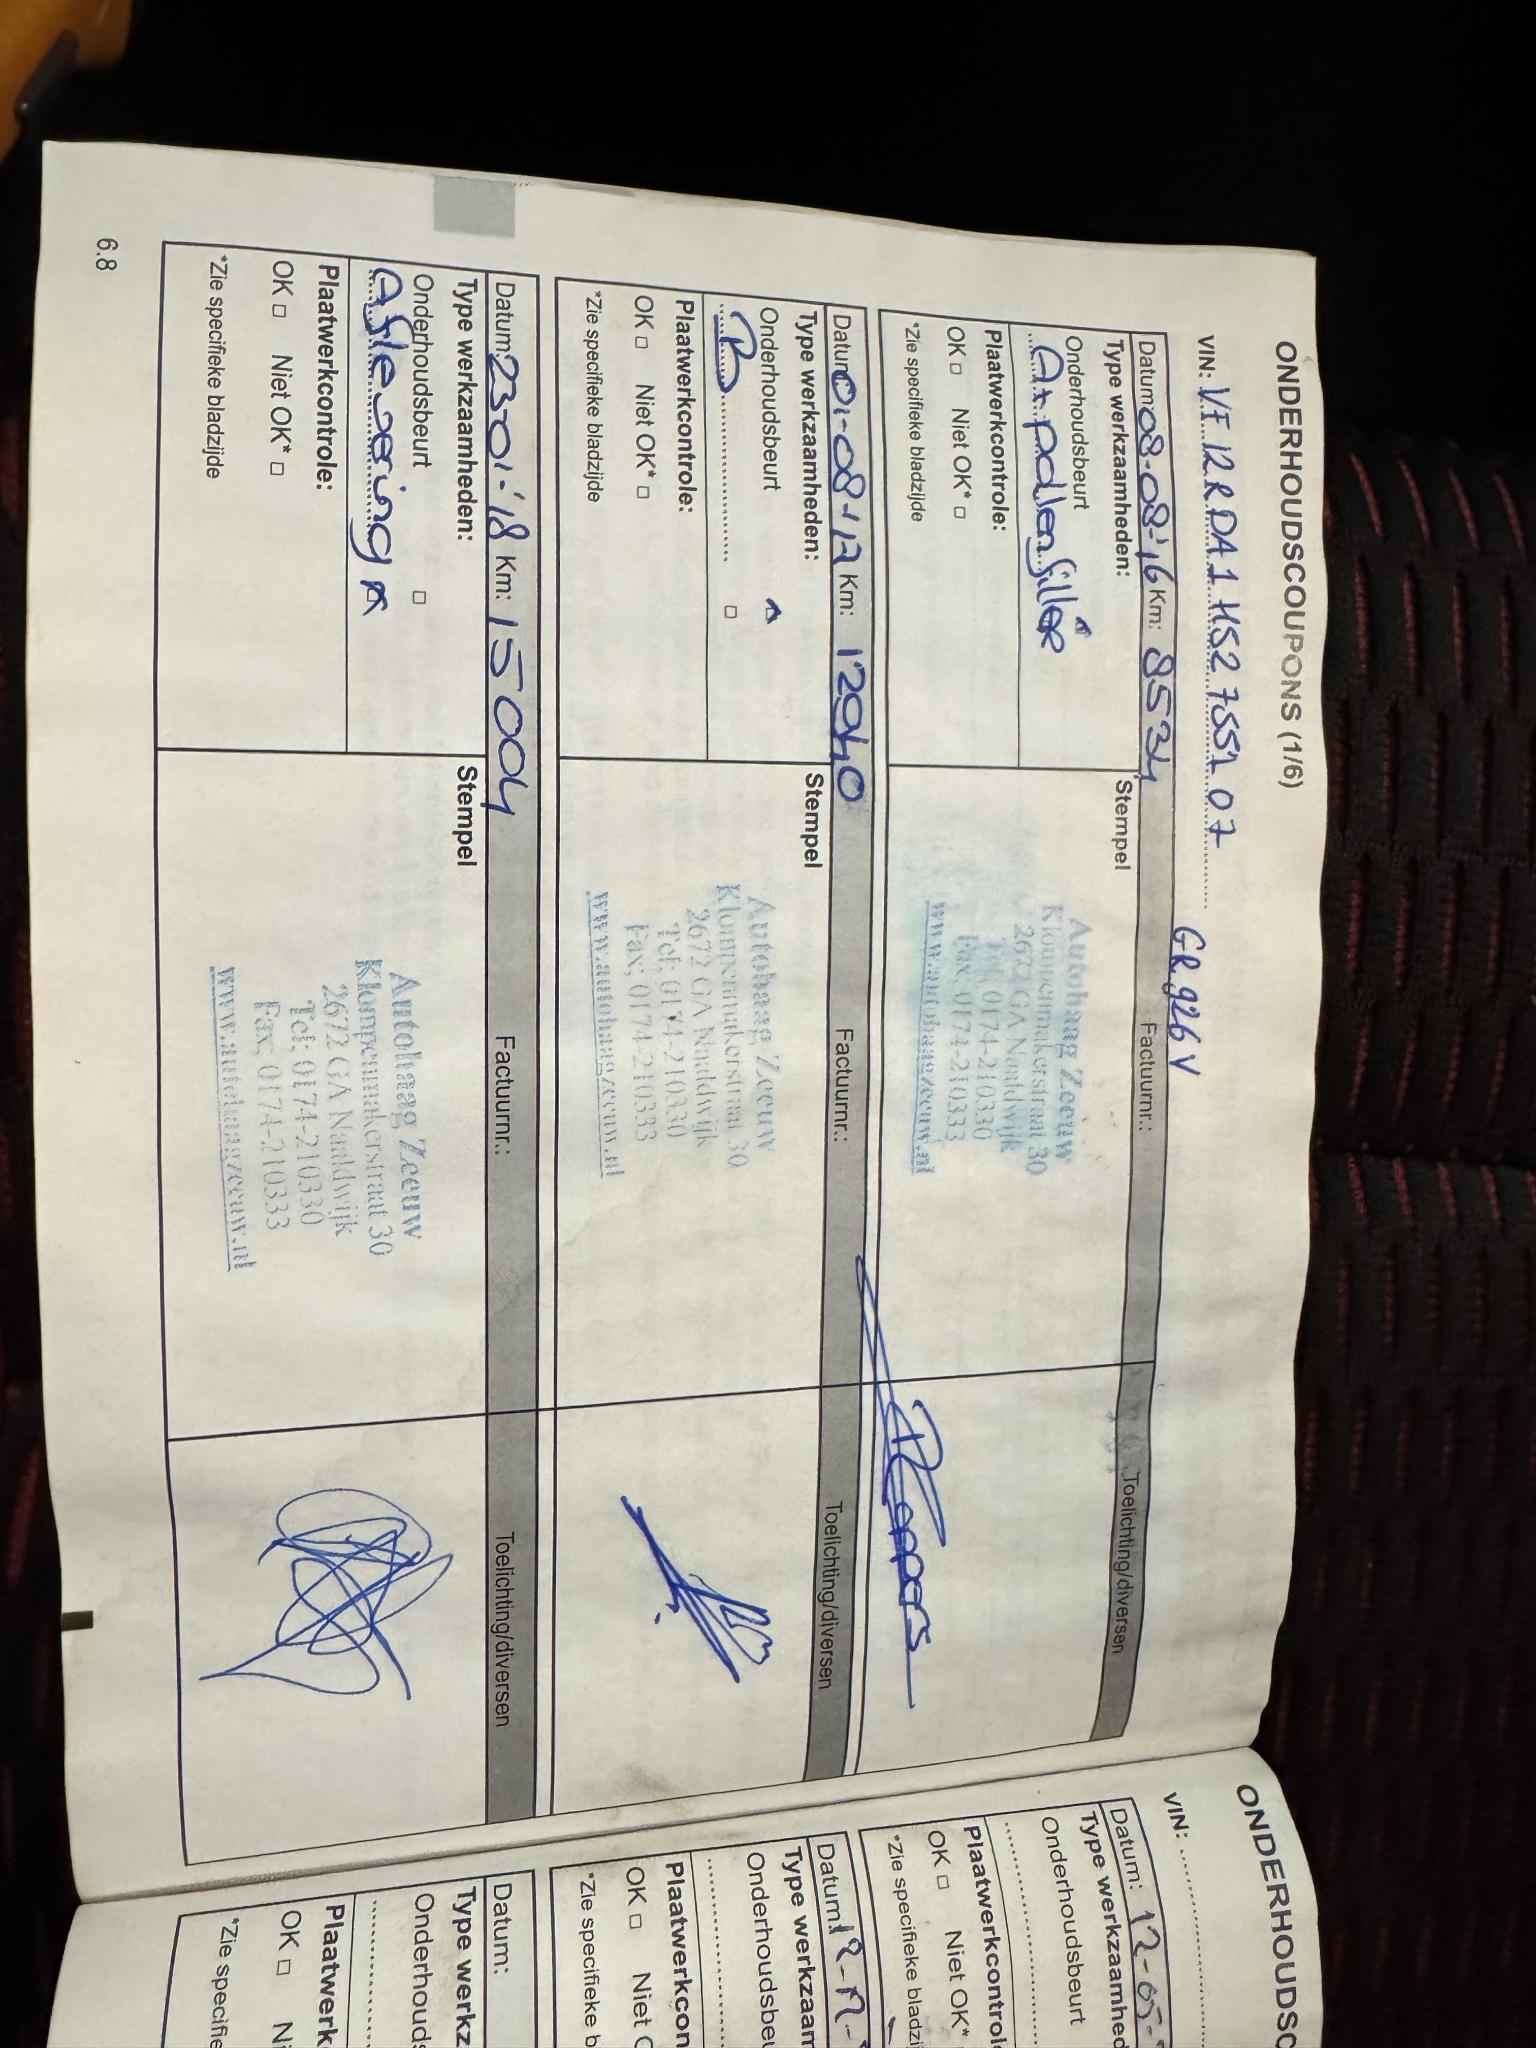 ONDERHOUDSCOUPONS (1/6)
VIN: VF12RDA1H52755107
GR 926 V
Datum: 08-08-'16 Km: 8534 Factuurnr.: Toelichting/diversen
Type werkzaamheden: Stempel
Onderhoudsbeurt
A+pollenfilter
Plaatwerkcontrole:
OK □ Niet OK* □
*Zie specifieke bladzijde
Autohaag Zeeuw
Klompenmakerstraat 30
2672 GA Naaldwijk
Tel; 0174-210330
Fax; 0174-210333
www.autohaagzeeuw.nl
Datum: 01-08-'17 Km: 12940 Factuurnr.: Toelichting/diversen
Type werkzaamheden: Stempel
Onderhoudsbeurt
B □
Plaatwerkcontrole:
OK □ Niet OK* □
*Zie specifieke bladzijde
Autohaag Zeeuw
Klompenmakerstraat 30
2672 GA Naaldwijk
Tel; 0174-210330
Fax; 0174-210333
www.autohaagzeeuw.nl
Datum: 23-01-'18 Km: 15004 Factuurnr.: Toelichting/diversen
Type werkzaamheden: Stempel
Onderhoudsbeurt □
Aflevering
Plaatwerkcontrole:
OK □ Niet OK* □
*Zie specifieke bladzijde
Autohaag Zeeuw
Klompenmakerstraat 30
2672 GA Naaldwijk
Tel; 0174-210330
Fax; 0174-210333
www.autohaagzeeuw.nl
6.8
ONDERHOUDSC
VIN:
Datum: 12-05-
Type werkzaamhed
Onderhoudsbeurt
Plaatwerkcontrol
OK □ Niet OK*
*Zie specifieke bladzi
Datum:
Type werkzaam
Onderhoudsbeu
Plaatwerkcon
OK □ Niet
*Zie specifieke b
Datum:
Type werkz
Onderhouds
Plaatwerk
OK □ Ni
*Zie specifie